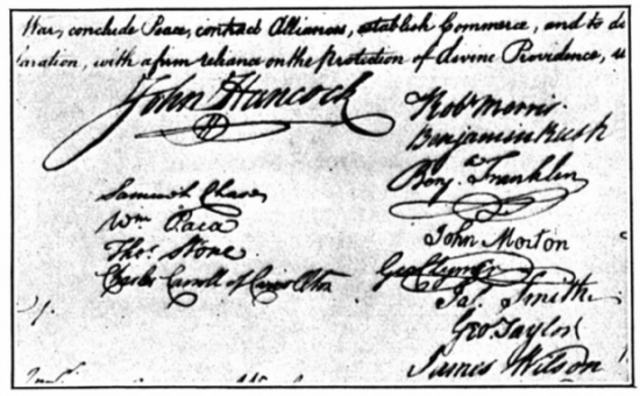 War, conclude Peace, contract Alliances, establish Commerce, and to do
laration, with a firm reliance on the Protection of divine Providence,
John Hancock
Samuel Chase
Wm Paca
Thos. Stone
Charles Carroll of Carrollton
Robt Morris
Benjamin Rush
Benj. Franklin
John Morton
Geo Clymer
Jas. Smith
Geo. Taylor
James Wilson